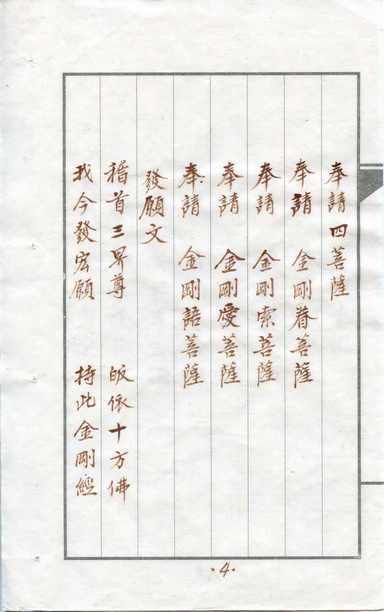 奉請四菩薩
奉請 金剛眷菩薩
奉請 金剛索菩薩
奉請 金剛愛菩薩
奉請 金剛語菩薩
發願文
稽首三界尊 皈依十方佛
我今發宏願 持此金剛經
·4·